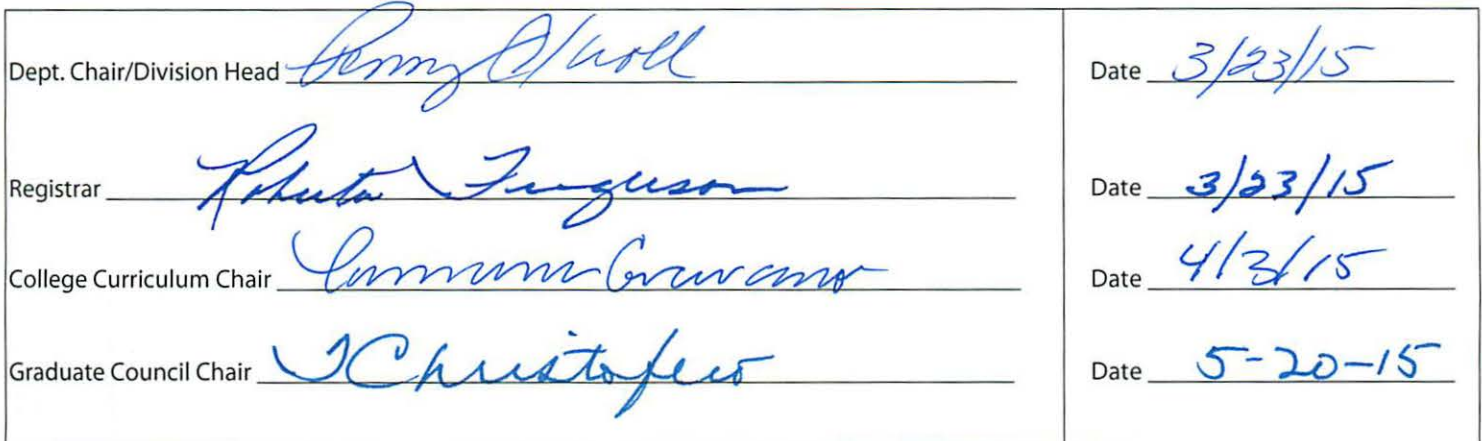 Dept. Chair/Division Head Date 3/23/15
Registrar Roberta Ferguson Date 3/23/15
College Curriculum Chair Date 4/3/15
Graduate Council Chair TChristofero Date 5-20-15